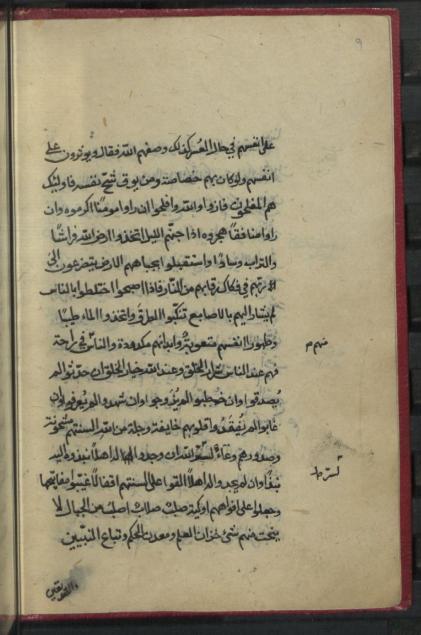 ٩
على انفسهم في حال العسر كذلك وصفهم الله فقال ويوثرون على
انفسهم ولو كان بهم خصاصة ومن يوق شح نفسه فاولئك
هم المفلحون فازوا والله وافلحوا ان راوا مومنًا اكرموه وان
راوا منافقًا هجروه اذا جنهم الليل اتخذوا ارض الله فراشًا
والتراب وسادًا واستقبلوا بجباههم الارض يتضرعون الى
ربهم في فكاك رقابهم من النار فاذا اصبحوا اختلطوا بالناس
لم يشار اليهم بالاصابع تنكبوا الطرق واتخذوا الماء طيبًا
وطهورا انفسهم متعوبة وابدانهم مكدودة والناس في راحة
منهم
فهم عند الناس شرار الخلق وعند الله خيار الخلق ان حدثوا لم
يصدقوا وان خطبوا لم يزوجوا وان شهدوا لم يعرفوا وان
غابوا لم يفقدوا قلوبهم خايفة وجلة من الله السنتهم مسجونة
وصدورهم وعاء لسر الله ان وجدوا له اهلًا نبذوه اليه
نبذًا وان لم يجدوا له اهلًا القوا على السنتهم اقفالًا غيبوا مفاتيحها
وجعلوا على افواههم اوكية صلب صلاب اصلب من الجبال لا
ينحت منهم شئ خزان العلم ومعدن الحكم وتباع النبيين
والصديقين